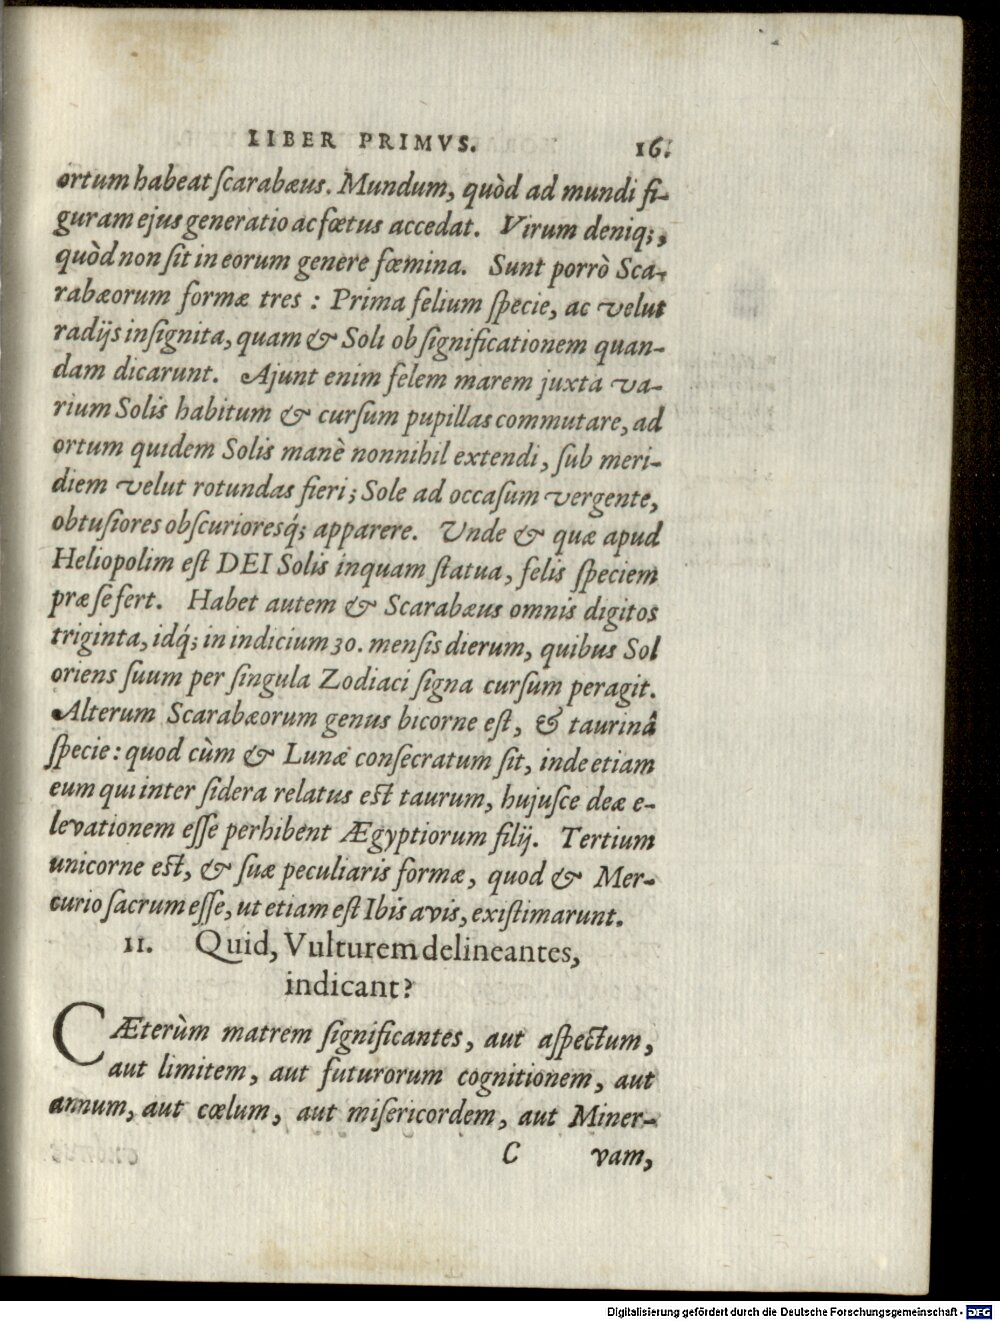 LIBER PRIMVS. 16.
ortum habeat ſcarabæus. Mundum, quòd ad mundi fi-
guram ejus generatio ac fœtus accedat. Virum deniq;,
quòd non ſit in eorum genere fœmina. Sunt porrò Sca-
rabæorum formæ tres : Prima felium ſpecie, ac velut
radijs inſignita, quam & Soli ob ſignificationem quan-
dam dicarunt. Ajunt enim felem marem juxta va-
rium Solis habitum & curſum pupillas commutare, ad
ortum quidem Solis manè nonnihil extendi, ſub meri-
diem velut rotundas fieri; Sole ad occaſum vergente,
obtuſiores obſcurioresq́; apparere. Unde & quæ apud
Heliopolim eſt DEI Solis inquam ſtatua, felis ſpeciem
præ ſe fert. Habet autem & Scarabæus omnis digitos
triginta, idq́; in indicium 30. menſis dierum, quibus Sol
oriens ſuum per ſingula Zodiaci ſigna curſum peragit.
Alterum Scarabæorum genus bicorne eſt, & taurinâ
ſpecie: quod cùm & Lunæ conſecratum ſit, inde etiam
eum qui inter ſidera relatus eſt taurum, hujuſce deæ e-
levationem eſſe perhibent Ægyptiorum filij. Tertium
unicorne eſt, & ſuæ peculiaris formæ, quod & Mer-
curio ſacrum eſſe, ut etiam eſt Ibis avis, exiſtimarunt.
11. Quid, Vulturem delineantes,
indicant?
CÆterùm matrem ſignificantes, aut aſpectum,
aut limitem, aut futurorum cognitionem, aut
annum, aut cœlum, aut miſericordem, aut Miner-
C vam,
Digitalisierung gefördert durch die Deutsche Forschungsgemeinschaft - DFG